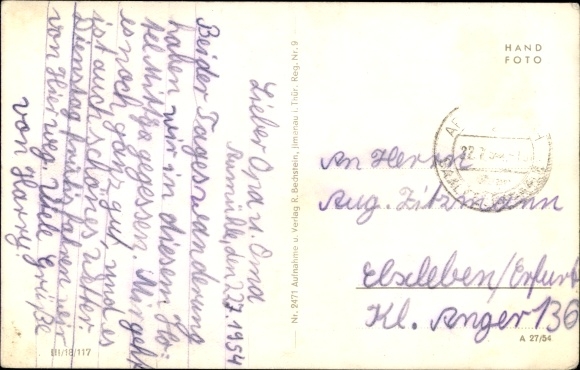 Lieber Opa u. Oma
Aumühle, den 22.7.1954
Bei der Tageswanderung
haben wir in diesem Ho-
tel Mittag gegessen. Mir geht
es noch ganz gut, und es
ist auch schönes Wetter.
Dienstag früh fahren wir
von Hier weg. Viele Grüße
von Harry
III/18/117
Nr. 2471 Aufnahme u. Verlag R. Bechstein, Jlmenau i. Thür. Reg. Nr. 9
HAND
FOTO
An Herrn
Aug. Zitzmann
Elxleben/Erfurt
Kl. Anger 136
A 27/54